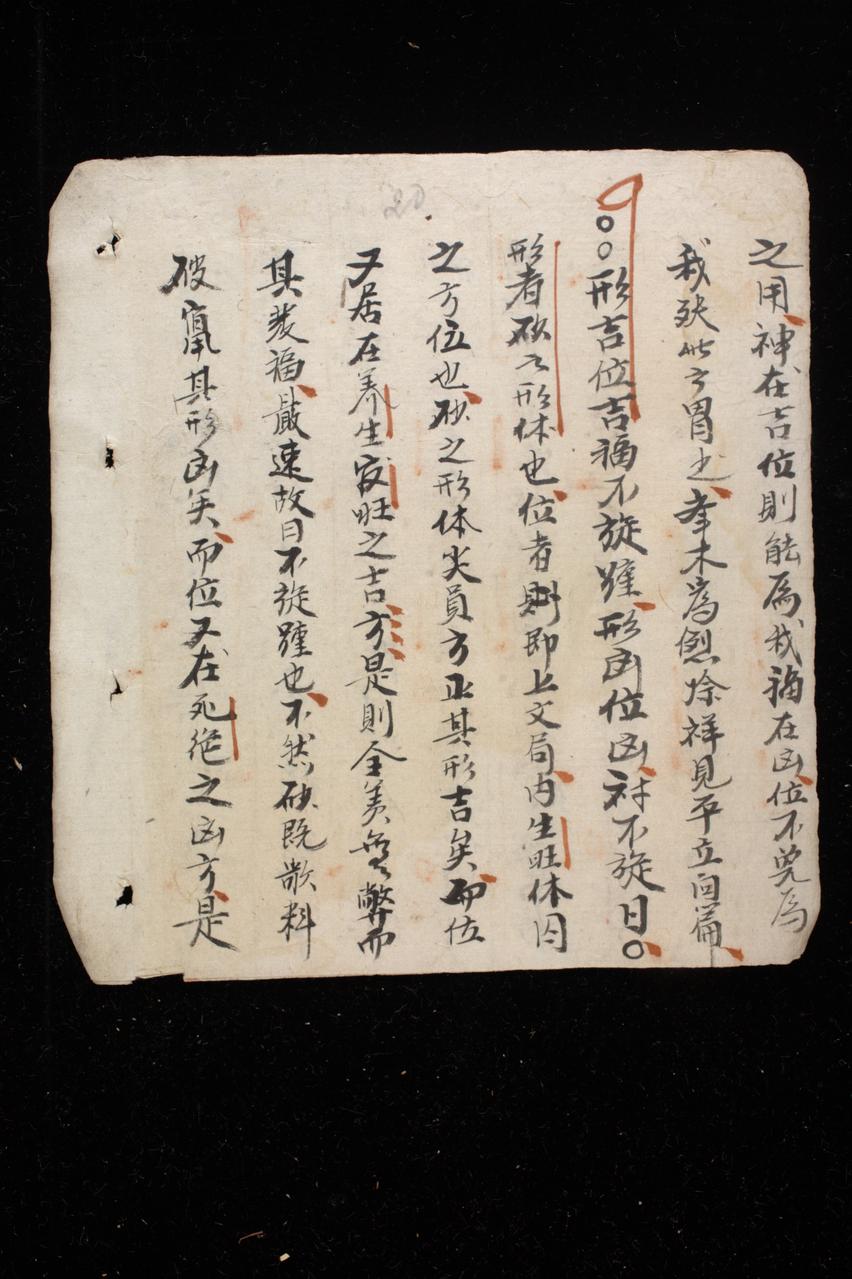 20
之用神在吉位則能為我福在凶位不免為
我殃此方冒也峯木為
祥見平立向篇
○○形吉位吉福不旋踵形凶位凶禍不旋日○
形者砂之形体也位者則即上文局内生旺休囚
之方位也砂之形体尖員方正其形吉矣而位
又居在养生官旺之吉方是則全美無弊而
其發福最速故曰不旋踵也不然砂既歆斜
破其形凶矣而位又在死絕之凶方是